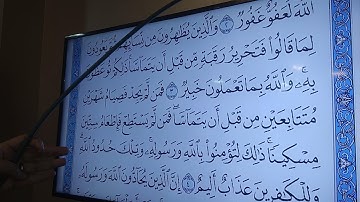 ٱللَّهَ لَعَفُوٌّ غَفُورٌ ٢ وَٱلَّذِينَ يُظَٰهِرُونَ مِن نِّسَآئِهِمْ ثُمَّ يَعُودُونَ
لِمَا قَالُوا۟ فَتَحْرِيرُ رَقَبَةٍ مِّن قَبْلِ أَن يَتَمَآسَّا ذَٰلِكُمْ تُوعَظُونَ
بِهِۦ وَٱللَّهُ بِمَا تَعْمَلُونَ خَبِيرٌ ٣ فَمَن لَّمْ يَجِدْ فَصِيَامُ شَهْرَيْنِ
مُتَتَابِعَيْنِ مِن قَبْلِ أَن يَتَمَآسَّا فَمَن لَّمْ يَسْتَطِعْ فَإِطْعَامُ سِتِّينَ
مِسْكِينًا ذَٰلِكَ لِتُؤْمِنُوا۟ بِٱللَّهِ وَرَسُولِهِۦ وَتِلْكَ حُدُودُ ٱللَّهِ
وَلِلْكَٰفِرِينَ عَذَابٌ أَلِيمٌ ٤ إِنَّ ٱلَّذِينَ يُحَآدُّونَ ٱللَّهَ وَرَسُولَهُۥ